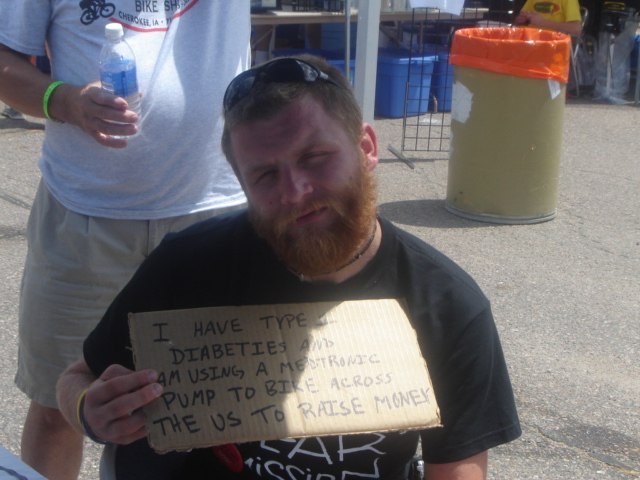 BIKE SH
CHEROKEE, IA
I HAVE TYPE 1
DIABETIES AND
AM USING A MEDTRONIC
PUMP TO BIKE ACROSS
THE US TO RAISE MONEY
EAR
MISSION